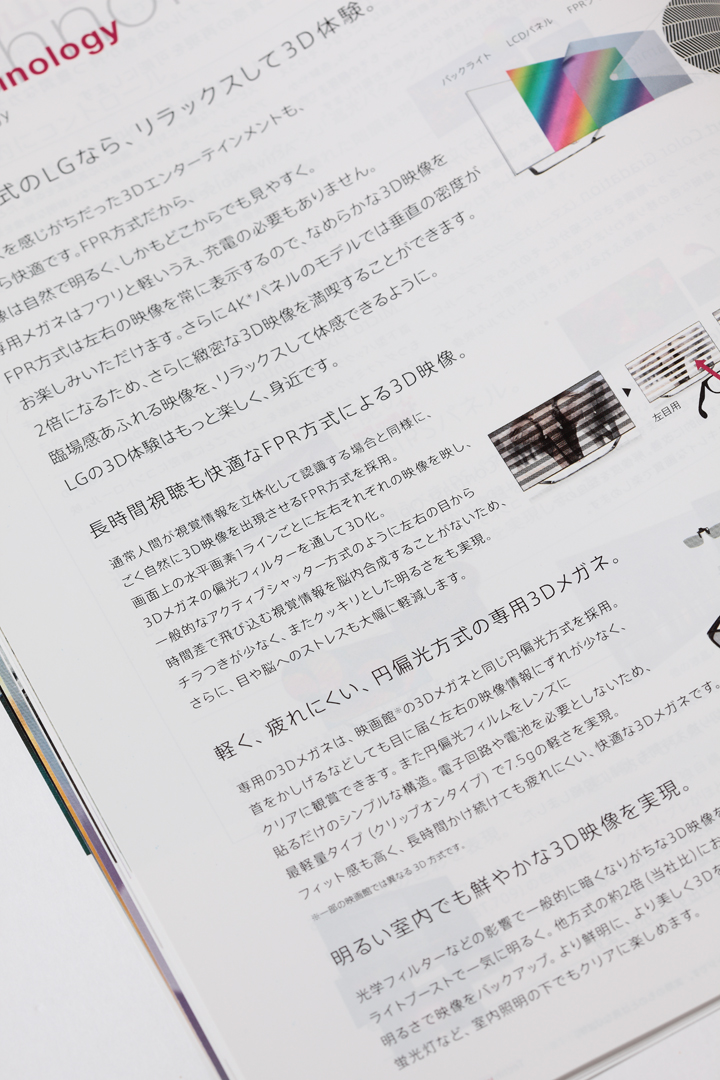 nology
バックライト
LCDパネル
FPR
式のLGなら、リラックスして3D体験。
を感じがちだった3Dエンターテインメントも、
快適です。FPR方式だから、
は自然で明るく、しかもどこからでも見やすく。
専用メガネはフワリと軽いうえ、充電の必要もありません。
FPR方式は左右の映像を常に表示するので、なめらかな3D映像を
お楽しみいただけます。さらに4K*パネルのモデルでは垂直の密度が
2倍になるため、さらに緻密な3D映像を満喫することができます。
臨場感あふれる映像を、リラックスして体感できるように。
LGの3D体験はもっと楽しく、身近です。
長時間視聴も快適なFPR方式による3D映像。
通常人間が視覚情報を立体化して認識する場合と同様に、
ごく自然に3D映像を出現させるFPR方式を採用。
画面上の水平画素1ラインごとに左右それぞれの映像を映し、
3Dメガネの偏光フィルターを通して3D化。
一般的なアクティブシャッター方式のように左右の目から
時間差で飛び込む視覚情報を脳内合成することがないため、
チラつきが少なく、またクッキリとした明るさをも実現。
さらに、目や脳へのストレスも大幅に軽減します。
左目用
軽く、疲れにくい、円偏光方式の専用3Dメガネ。
専用の3Dメガネは、映画館※の3Dメガネと同じ円偏光方式を採用。
首をかしげるなどしても目に届く左右の映像情報にずれが少なく、
クリアに観賞できます。また円偏光フィルムをレンズに
貼るだけのシンプルな構造。電子回路や電池を必要としないため、
最軽量タイプ(クリップオンタイプ)で7.5gの軽さを実現。
フィット感も高く、長時間かけ続けても疲れにくい、快適な3Dメガネです。
※一部の映画館では異なる3D方式です。
明るい室内でも鮮やかな3D映像を実現。
光学フィルターなどの影響で一般的に暗くなりがちな3D映像を
ライトブーストで一気に明るく。他方式の約2倍(当社比)にお
明るさで映像をバックアップ。より鮮明に、より美しく3Dを
蛍光灯など、室内照明の下でもクリアに楽しめます。